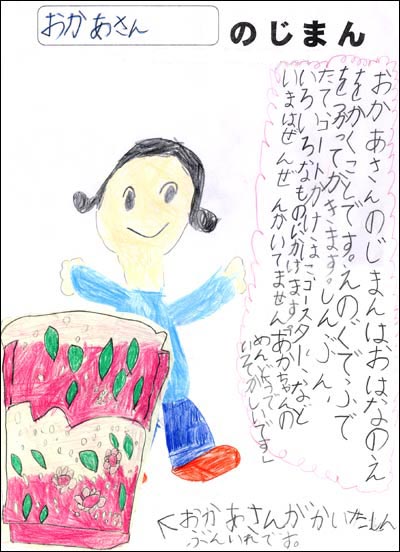 おかあさん のじまん
おかあさんのじまんはおはなのえ
ををかくことです。えのぐでふで
をつかってかきます。しんぶん、
たて、コートかけ、まごースター、など
いろいろなものにかけます。
いまはぜんぜんかいてません。あかちゃんの
めんどうで
いそがしいです」
↖おかあさんがかいたしん
ぶんいれです。